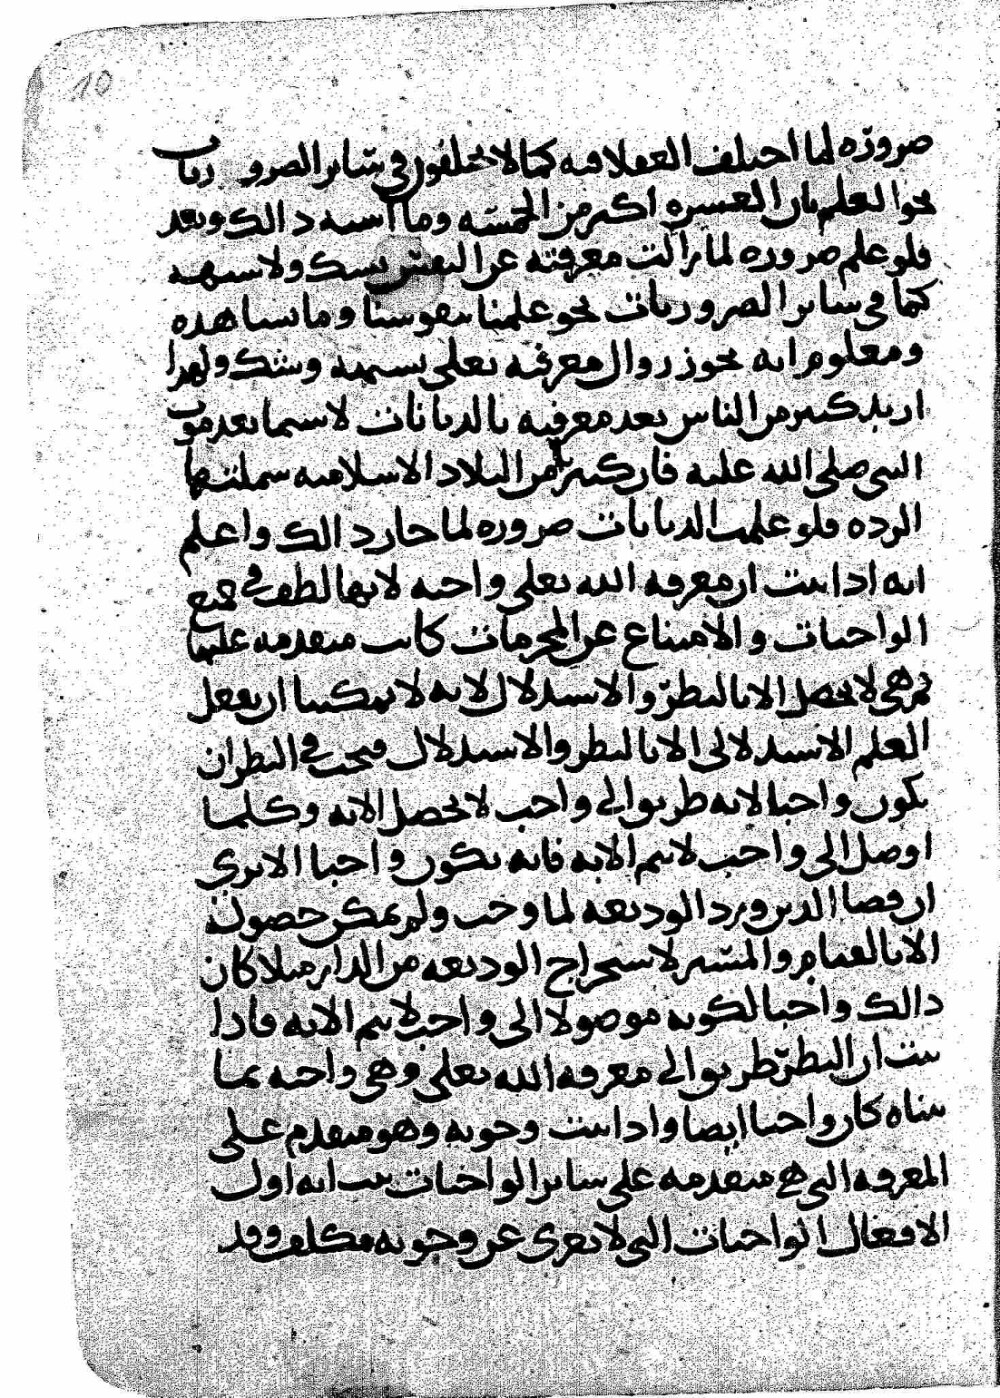 10
ضرورة لما اختلف العقلا فيه كما لا يختلفون في سائر الضروريات
نحو العلم بان العشرة اكثر من الخمسة وما اشبه ذالك وبعد
فلو علم ضرورة لما زالت معرفته عن النفس بشك ولا شبهة
كما في سائر الضروريات نحو علمنا بنفوسنا وما نشاهده
ومعلوم انه يجوز زوال معرفته تعلى بشبهة وشك ولهذا
ارتد كثير من الناس بعد معرفته بالديانات لا سيما بعد موت
النبي صلى الله عليه فان كثيرا من البلاد الاسلامية شملتها
الردة فلو علمت الديانات ضرورة لما جاز ذالك واعلم
انه اذا ثبت ان معرفة الله تعلى واجبة لانها لطف في جميع
الواجبات والامتناع عن المحرمات كانت متقدمة عليها
ثم هي لا تحصل الا بالنظر والاستدلال لانه لا يمكننا ان نفعل
العلم الاستدلالي الا بالنظر والاستدلال فيجب في النظر ان
يكون واجبا لانه طريق الى واجب لا يحصل الا به وكلما
اوصل الى واجب لا يتم الا به فانه يكون واجبا الا ترى
ان قضا الدين ورد الوديعة لما وجب ولم يمكن حصوله
الا بالقيام والمشي لاستخراج الوديعة من الدار مثلا كان
ذالك واجبا لكونه موصولا الى واجب لا يتم الا به فاذا
ثبت ان النظر طريق الى معرفة الله تعلى وهي واجبة بما
بيناه كان واجبا ايضا واذا ثبت وجوبه وهو متقدم على
المعرفة التي هي متقدمة على سائر الواجبات ثبت انه اول
الافعال الواجبات التي لا يعرى عن وجوبه مكلف وقد